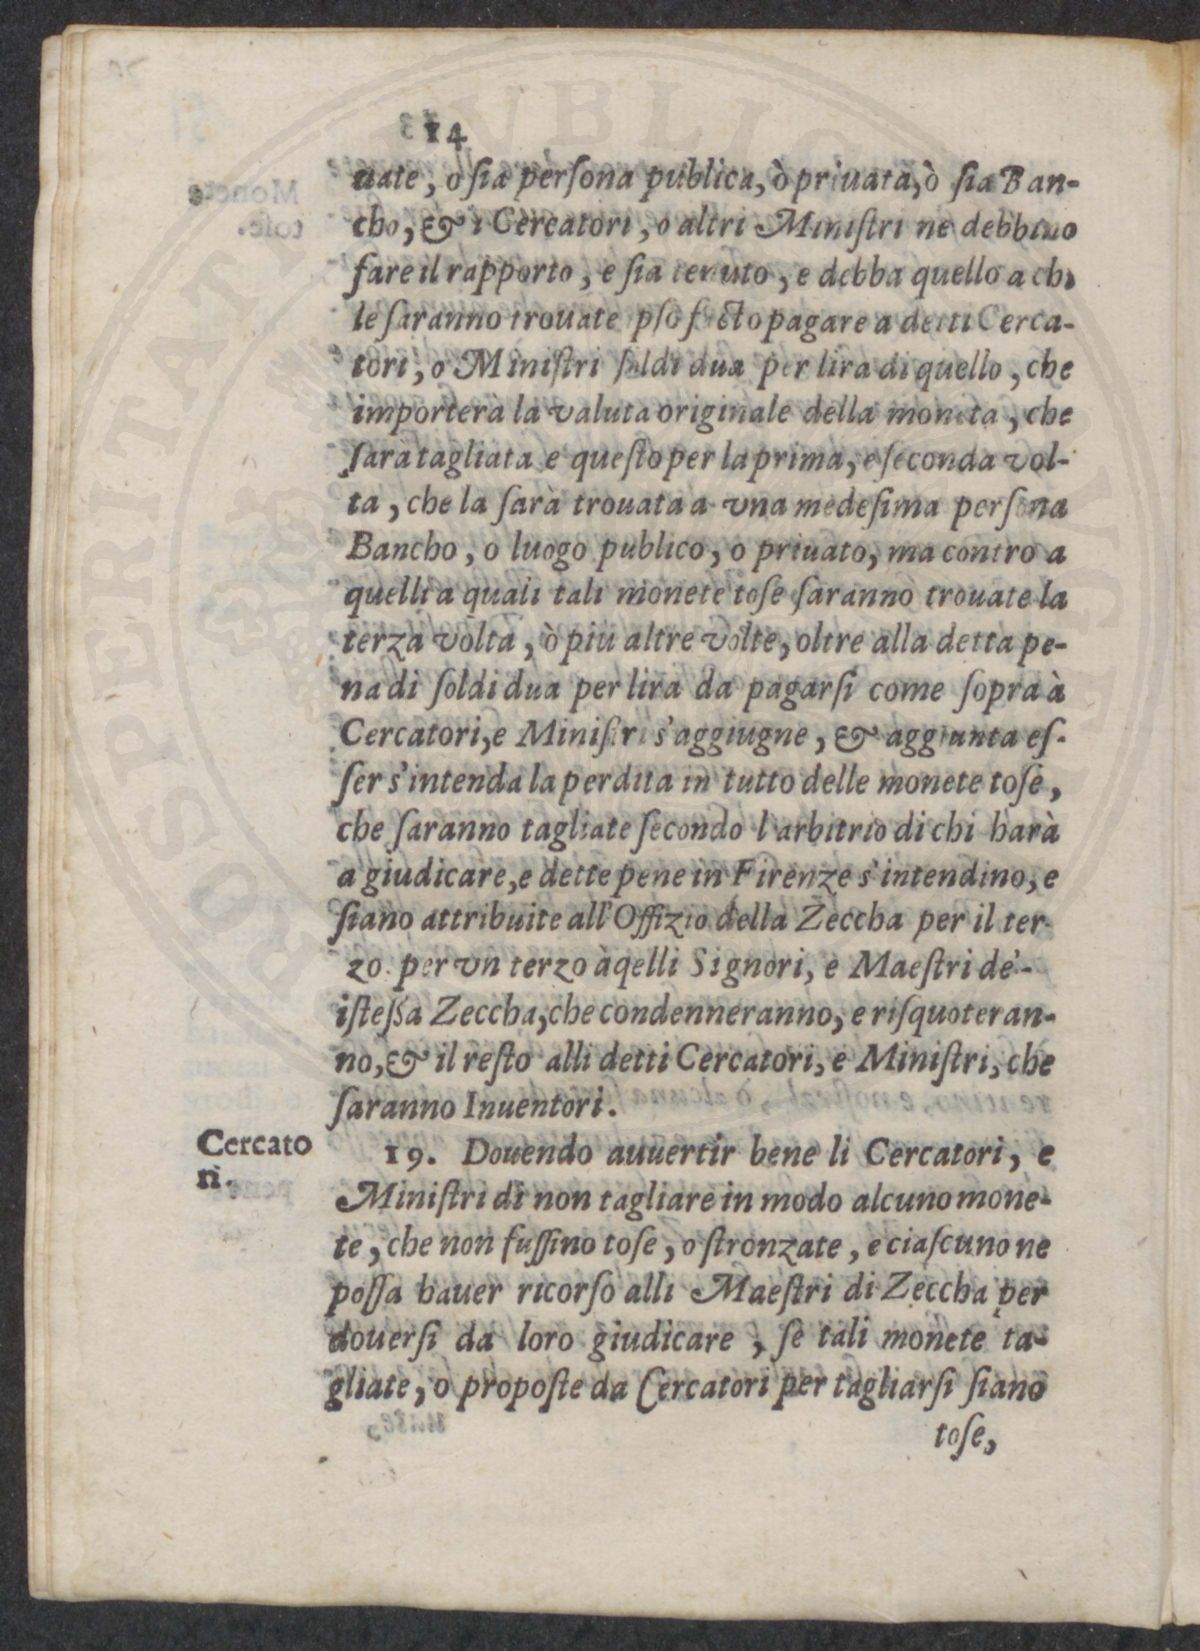 14
uate, o sia persona publica, ò priuata, ò sia Ban-
cho, & i Cercatori, o altri Ministri ne debbino
fare il rapporto, e sia tenuto, e debba quello a chi
le saranno trouate ipso facto pagare a detti Cerca-
tori, o Ministri soldi dua per lira di quello, che
importerà la valuta originale della moneta, che
sarà tagliata e questo per la prima, e seconda vol-
ta, che la sarà trouata a vna medesima persona
Bancho, o luogo publico, o priuato, ma contro a
quelli a quali tali monete tose saranno trouate la
terza volta, ò più altre volte, oltre alla detta pe-
na di soldi dua per lira da pagarsi come sopra à
Cercatori, e Ministri s'aggiugne, & aggiunta es-
ser s'intenda la perdita in tutto delle monete tose,
che saranno tagliate secondo l'arbitrio di chi harà
a giudicare, e dette pene in Firenze s'intendino, e
siano attribuite all'Offizio della Zeccha per il ter-
zo per vn terzo àqelli Signori, e Maestri de'-
istessa Zeccha, che condenneranno, e risquoteran-
no, & il resto alli detti Cercatori, e Ministri, che
saranno Inuentori.
Cercato
ri.
19. Douendo auuertir bene li Cercatori, e
Ministri di non tagliare in modo alcuno mone-
te, che non fussino tose, o stronzate, e ciascuno ne
possa hauer ricorso alli Maestri di Zeccha per
douersi da loro giudicare, se tali monete ta-
gliate, o proposte da Cercatori per tagliarsi siano
tose,